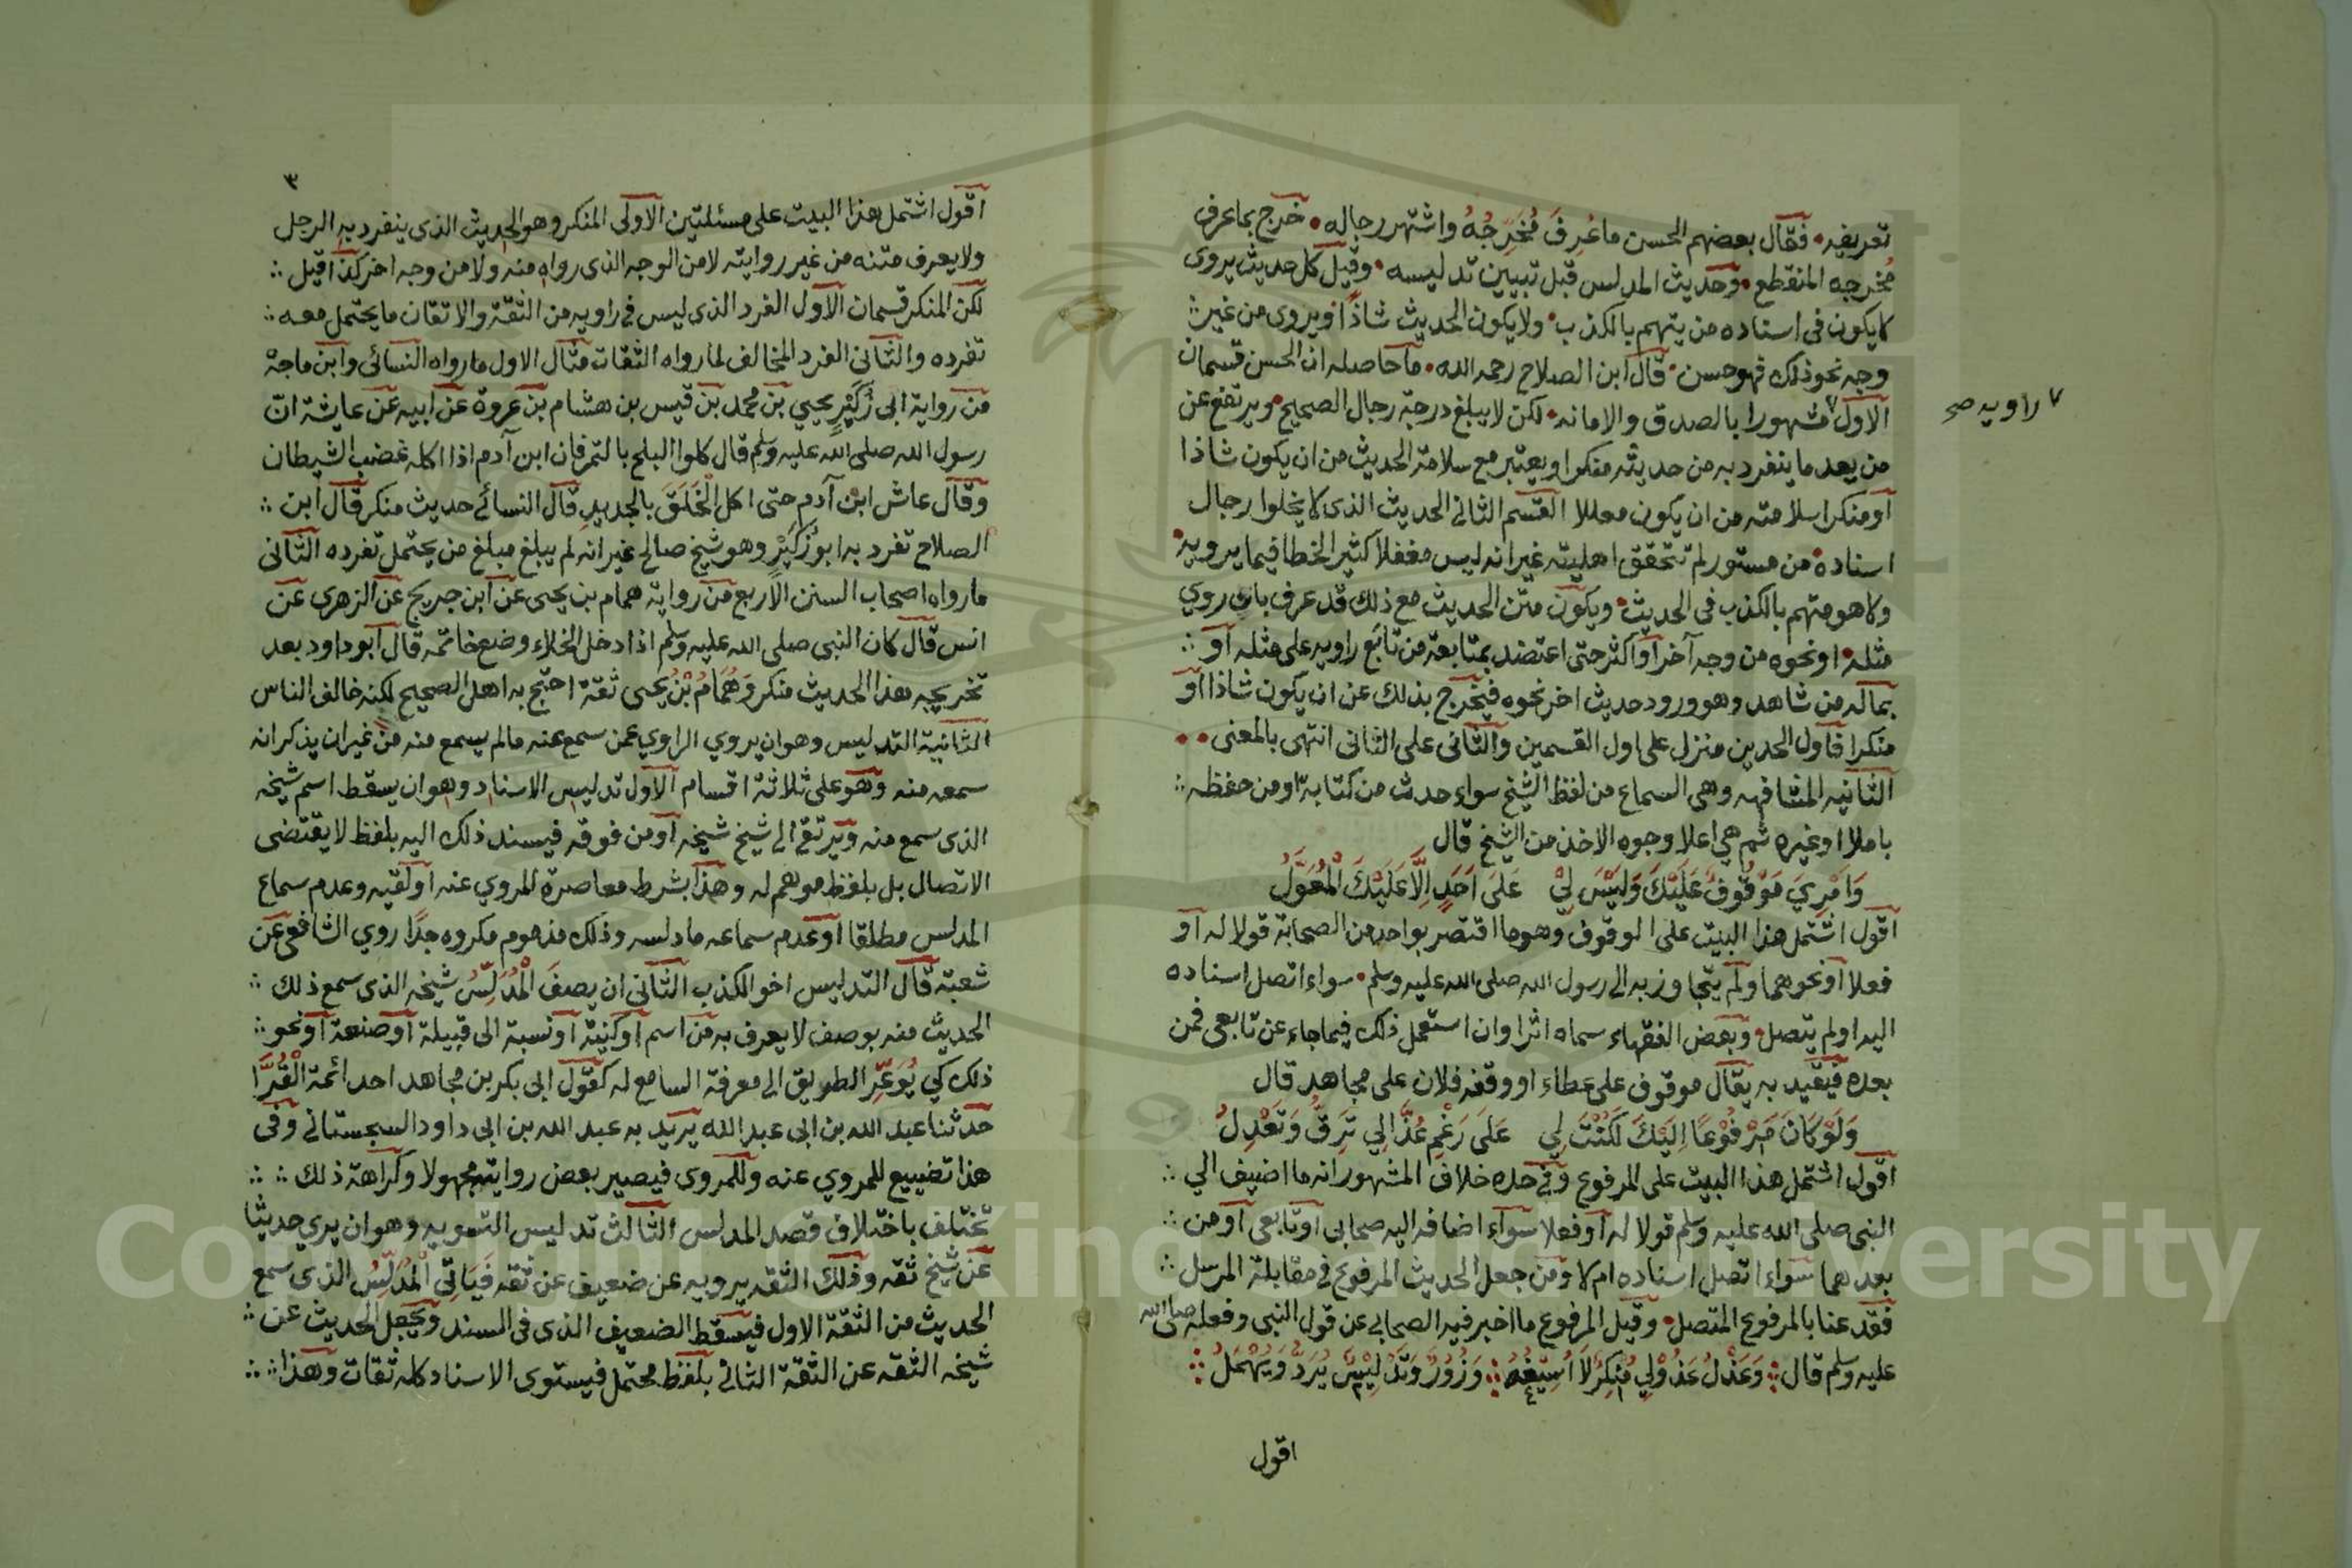 تعريفه. فقال بعضهم الحسن ما عُرِفَ مُخَرِّجُهُ واشتهر رجاله. خرج بما عرف
مخرجه المنقطع. وحديث المدلس قبل تبيين تدليسه. وقيل كل حديث يروى
لا يكون فى اسناده من يتهم بالكذب. ولا يكون الحديث شاذاً ويروى من غير
وجه نحو ذلك فهو حسن. قال ابن الصلاح رحمه الله. ما حاصله ان الحسن قسمان
الاول ٧ مشهورا بالصدق والامانه. لكن لا يبلغ درجة رجال الصحيح. ويرتفع عن
٧ راويه صح
من يعد ما ينفرد به من حديثه منكرا ويعتبر مع سلامة الحديث من ان يكون شاذا
او منكرا سلامته من ان يكون معللا القسم الثانى الحديث الذى لا يخلوا رجال
اسناده من مستور لم تتحقق اهليته غير انه ليس مغفلا كثير الخطا فيما يرويه.
ولا هو متهم بالكذب فى الحديث. ويكون متن الحديث مع ذلك قد عرف بان روي
مثله. او نحوه من وجه آخر او اكثر حتى اعتضد بمتابعة من تابع راويه على مثله او
بماله من شاهد وهو ورود حديث اخر نحوه فيخرج بذلك عن ان يكون شاذا او
منكرا فاول الحدين منزل على اول القسمين والثانى على الثانى انتهى بالمعنى..
الثانيه المشافهه وهى السماع من لفظ الشيخ سواء حدث من كتابه او من حفظه
باملا او غيره ثم هي اعلا وجوه الاخذ من الشيخ قال
وَامْرِيَ مَوْقُوفٌ عَلَيْكَ وَلَيْسَ لِيْ عَلَى اَحَدٍ اِلَّا عَلَيْكَ الْمُعَوَّلُ
اقول اشتمل هذا البيت على الموقوف وهو ما اقتصر بواحد من الصحابة قولا له او
فعلا او نحوهما ولم يتجاوز به الى رسول الله صلى الله عليه وسلم. سواء اتصل اسناده
اليه او لم يتصل. وبعض الفقهاء سماه اثرا وان استعمل ذلك فيما جاء عن تابعى فمن
بعده فيقيد به يقال موقوف على عطاء او وقفه فلان على مجاهد قال
وَلَوْ كَانَ مَرْفُوْعًا اِلَيْكَ لَكُنْتَ لِي عَلَى رَغْمِ عُذَّالِي تَرِقُّ وَتَعْدِلُ
اقول اشتمل هذا البيت على المرفوع وفى حده خلاف المشهور انه ما اضيف الي
النبى صلى الله عليه وسلم قولا له او فعلا سواء اضافه اليه صحابى او تابعى او من
بعدهما سواء اتصل اسناده ام لا ومن جعل الحديث المرفوع فى مقابلة المرسل
فقد عنا بالمرفوع المتصل. وقيل المرفوع ما اخبر فيه الصحابى عن قول النبى وفعله صلى الله
عليه وسلم قال وَعَذْلُ عَذُوْلِي مُنْكَرٌ لَا اُسِيْغُهُ وَزُوْرٌ وَتَدْلِيْسٌ يُرَدُّ وَيُهْمَلُ
اقول
٣
اقول اشتمل هذا البيت على مسئلتين الاولى المنكر وهو الحديث الذى ينفرد به الرجل
ولا يعرف متنه من غير روايته لا من الوجه الذى رواه منه ولا من وجه اخر كذا قيل
لكن المنكر قسمان الاول الفرد الذى ليس فى راويه من الثقة والاتقان ما يحتمل معه
تفرده والثانى الفرد المخالف لما رواه الثقات مثال الاول ما رواه النسائى وابن ماجة
من رواية ابى زُكَيْرٍ يحيي بن محمد بن قيس بن هشام بن عروة عن ابيه عن عايشة انّ
رسول الله صلى الله عليه وسلم قال كلوا البلح بالتمر فان ابن آدم اذا اكله غضب الشيطان
وقال عاش ابن آدم حتى اكل الْخَلَقَ بالجديدِ قال النسائے حديث منكر قال ابن
الصلاح تفرد به ابو زُكَيْرٍ وهو شيخ صالح غير انه لم يبلغ مبلغ من يحتمل تفرده الثانى
ما رواه اصحاب السنن الاربع من رواية همام بن يحيى عن ابن جريج عن الزهرى عن
انس قال كان النبى صلى الله عليه وسلم اذا دخل الخلاء وضع خاتمه قال ابو داود بعد
تخريجه هذا الحديث منكر وَهَمَّامُ بْنُ يحيى ثقة احتج به اهل الصحيح لكنه خالف الناس
الثانية التدليس وهو ان يروي الراوي عمن سمع عنه مالم يسمع منه من غير ان يذكر انه
سمعه منه وهو على ثلاثة اقسام الاول تدليس الاسناد وهو ان يسقط اسم شيخه
الذى سمع منه ويرتقى الى شيخ شيخه او من فوقه فيسند ذلك اليه بلفظ لا يقتضى
الاتصال بل بلفظ موهم له وهذا بشرط معاصرة المروي عنه او لقيه وعدم سماع
المدلس مطلقا او عدم سماعه ما دلسه وذلك مذموم مكروه جدًا روي الشافعى عن
شعبة قال التدليس اخو الكذب الثانى ان يصفَ الْمُدَلِّسُ شيخه الذى سمع ذلك
الحديث منه بوصف لا يعرف به من اسم او كنية او نسبة الى قبيلة او صنعة او نحو
ذلك كي يُوَعِّرَ الطريق الى معرفة السامع له كقول ابى بكر بن مجاهد احد ائمة الْقُرَّا
حدثنا عبد الله بن ابى عبد الله يريد به عبد الله بن ابى داود السجستانى وفى
هذا تضييع للمروي عنه وللمروى فيصير بعض رواية مجهولا وكراهة ذلك
تختلف باختلاف قصد المدلس الثالث تدليس التسويه وهو ان يروي حديثا
عن شيخ ثقه وذلك الثقه يرويه عن ضعيف عن ثقه فَيَاتِي الْمُدَلِّسُ الذى سمع
الحديث من الثقة الاول فيسقط الضعيف الذى فى السند ويجعل الحديث عن
شيخه الثقه عن الثقة الثانى بلفظ محتمل فيستوى الاسناد كله ثقات وهذا
Copyright © King Saud University